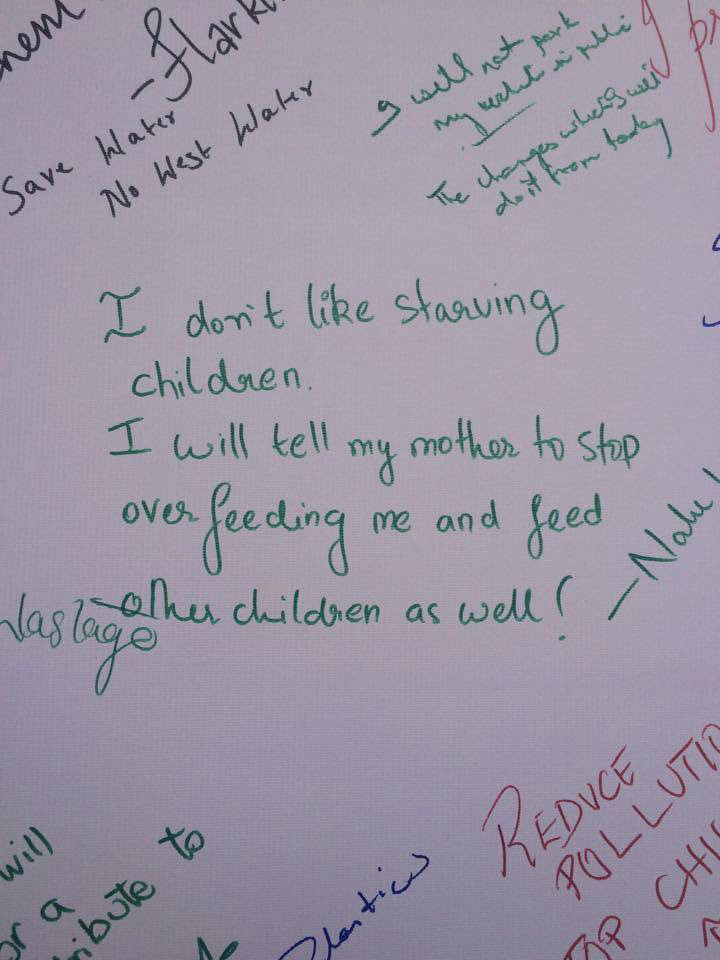 Save Water
No West Water
I will not park
my vehicle in public
The changes which I will
do it from today
I don't like starving
children.
I will tell my mother to stop
over feeding me and feed
other children as well!
Wastage
REDUCE
POLLUTIO
CHI
will
or a
ribute to
Plastics